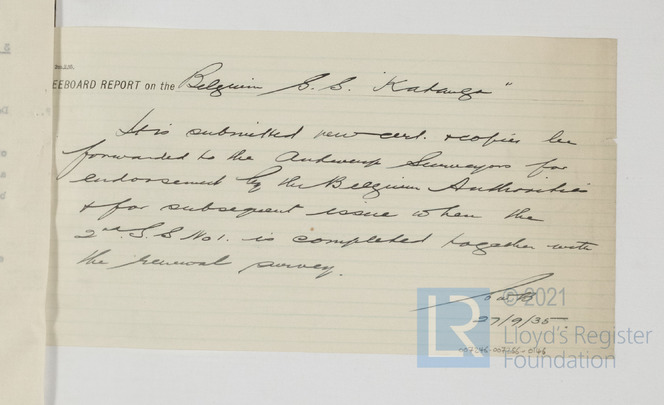 EEBOARD REPORT on the Belgium S.S. "Katanga"
It is submitted new cert. & copies be
forwarded to the Antwerp Surveyors for
endorsement by the Belgium Authorities
& for subsequent issue when the
2nd. S.S No1. is completed together with
the renewal survey.
27/9/35.
© 2021
LR
Lloyd's Register
Foundation